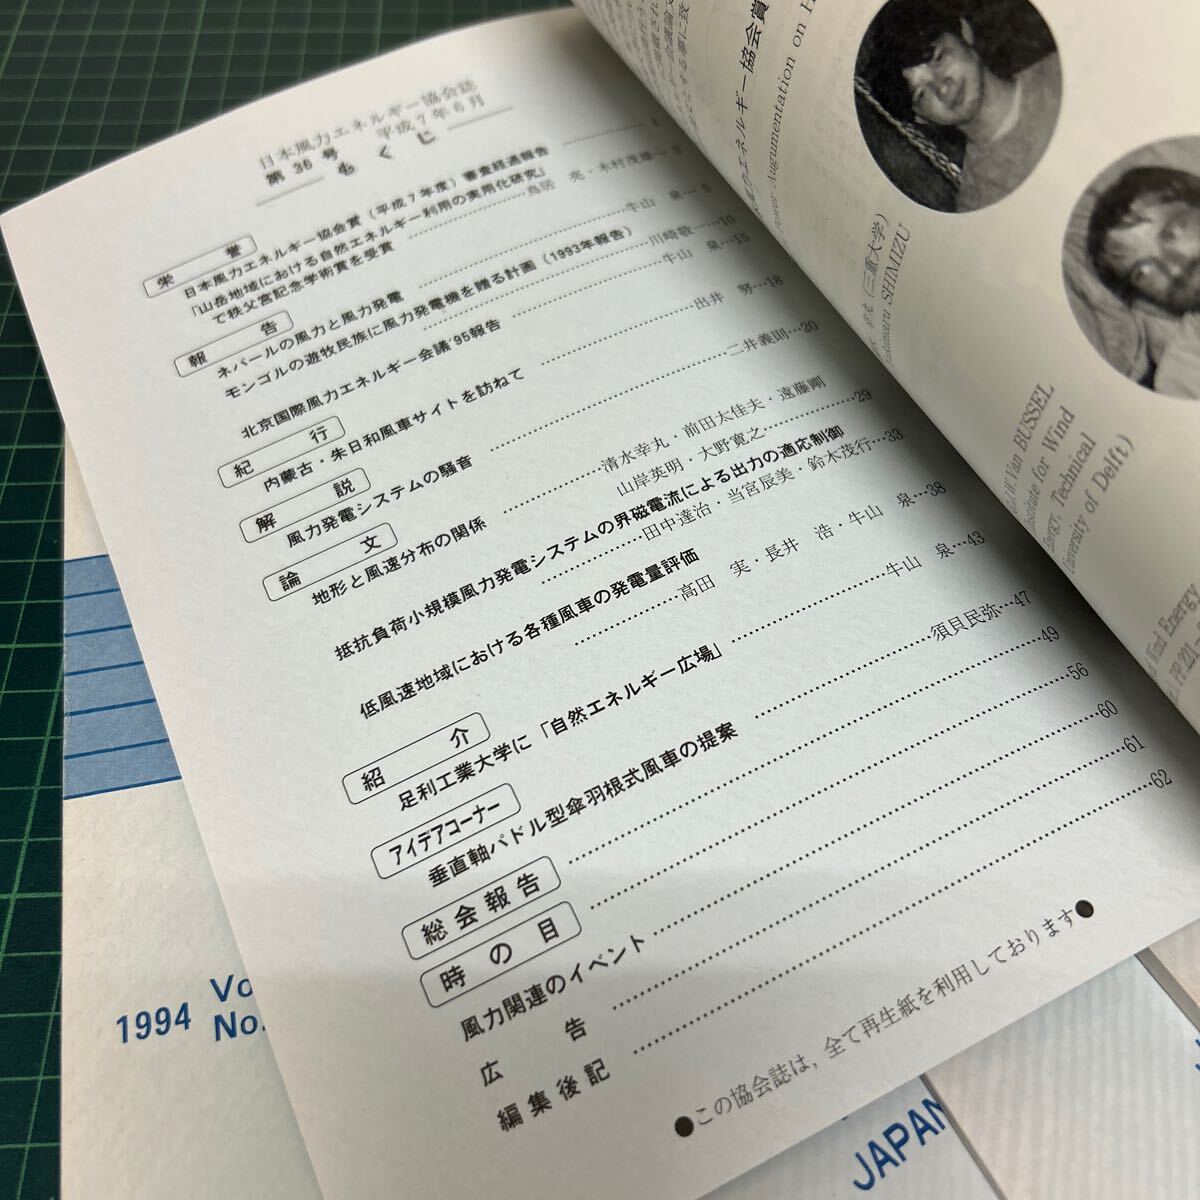 日本風力エネルギー協会誌
第 36 号 平成7年6月
もくじ
栄誉
日本風力エネルギー協会賞(平成7年度)審査経過報告 1
「山岳地域における自然エネルギー利用の実用化研究」
で秩父宮記念学術賞を受賞 鳥居 亮・木村茂雄 3
報告
ネパールの風力と風力発電 牛山 泉 5
モンゴルの遊牧民族に風力発電機を贈る計画(1993年報告) 川崎敬一 10
北京国際風力エネルギー会議'95報告 牛山 泉 15
紀行
内蒙古・朱日和風車サイトを訪ねて 出井 努 18
解説
風力発電システムの騒音 二井義則 20
論文
地形と風速分布の関係 清水幸丸・前田太佳夫・遠藤剛
山岸英明・大野寛之 29
抵抗負荷小規模風力発電システムの界磁電流による出力の適応制御
田中達治・当宮辰美・鈴木茂行 33
低風速地域における各種風車の発電量評価
高田 実・長井 浩・牛山 泉 38
紹介
足利工業大学に「自然エネルギー広場」 牛山 泉 43
アイデアコーナー
垂直軸パドル型傘羽根式風車の提案 須貝民弥 47
総会報告 49
時の目 56
風力関連のイベント 60
広告 61
編集後記 62
●この協会誌は,全て再生紙を利用しております●
風力エネルギー協会賞
Power Augumentation on H
(三重大学)
SHIMIZU
Van BUSSEL
Institute for Wind
Energy, Technical
University of Delft)
Wind Energy
1994 Vo
No.
JAPAN